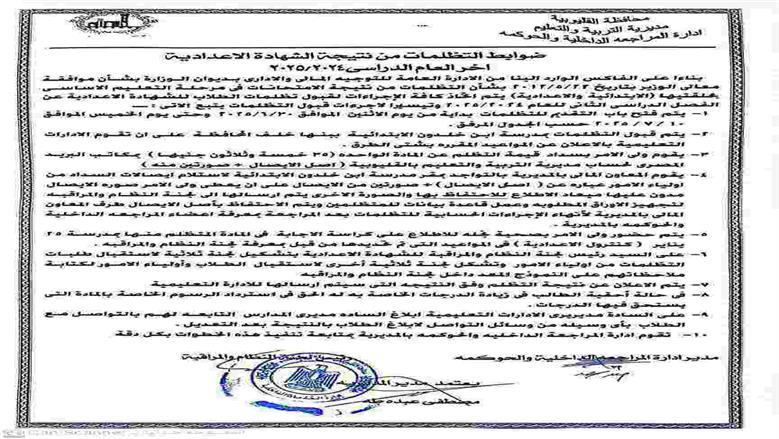 محافظة القليوبية
مديرية التربية والتعليم
ادارة المراجعه الداخلية والحوكمه
ضوابط التظلمات من نتيجة الشهادة الاعدادية
اخر العام الدراسى ٢٠٢٥/٢٠٢٤
بناءا على الفاكس الوارد الينا من الادارة العامة للتوجيه المالى والادارى بديوان الوزارة بشأن موافقة
معالى الوزير بتاريخ بشأن التظلمات من نتيجة الامتحانات فى مرحلة التعليم الاساسى
بحلقتيها (الابتدائية والاعدادية) يتم اتخاذ كافة الاجراءات لقبول تظلمات الطلاب للشهادة الاعدادية عن
الفصل الدراسى الثانى للعام ٢٠٢٥/٢٠٢٤ وتيسيرا لاجراءات قبول التظلمات يتبع الاتى :-
١- يتم فتح باب التقديم للتظلمات بداية من يوم الاثنين الموافق ٢٠٢٥/٦/٣٠ وحتى يوم الخميس الموافق
٢٠٢٥/٧/١٠ حسب الجدول المرفق .
٢- يتم قبول التظلمات بمدرسة ابن خلدون الابتدائية ببنها خلف المحافظة على ان تقوم الادارات
التعليمية بالاعلان عن المواعيد المقرره بشتى الطرق .
٣- يقوم ولى الامر بسداد قيمة التظلم عن المادة الواحده (٣٥ خمسة وثلاثون جنيها) بمكاتب البريد
المصرى لحساب مديرية التربية والتعليم بالقليوبية ( اصل الايصال + صورتين منه )
٤- يقوم المعاون المالى بالمديرية بالتواجد بمقر مدرسة ابن خلدون الابتدائية لاستلام ايصالات السداد من
اولياء الامور عباره عن ( اصل الايصال ) + صورتين من الايصال على ان يعطى ولى الامر صوره الايصال
مدون عليها ميعاد الاطلاع للاحتفاظ بها والصورة الاخرى يتم ارسالها الى لجنة النظام والمراقبه
لتجهيز الاوراق المطلوبه وعمل قاعدة بيانات للمتظلمين ويتم الاحتفاظ بأصل الايصال طرف المعاون
المالى بالمديرية لأنهاء الاجراءات الحسابية للتظلمات بعد المراجعة بمعرفة اعضاء المراجعه الداخلية
والحوكمه بالمديرية .
٥- يتم حضور ولى الامر بصحبة نجله للاطلاع على كراسة الاجابة فى المادة المتظلم منها بمدرسة ٢٥
يناير ( كنترول الاعدادية ) فى المواعيد التى تم تحديدها من قبل بمعرفة لجنة النظام والمراقبه .
٦- على السيد رئيس لجنة النظام والمراقبة للشهادة الاعدادية بتشكيل لجنة ثلاثية لاستقبال طلبات
التظلمات من اولياء الامور وتشكل لجنة ثلاثية اخرى لاستقبال الطلاب وأولياء الامور لكتابة
ملاحظاتهم على النموذج المعد داخل لجنة النظام والمراقبه
٧- يتم الاعلان عن نتيجة التظلم وفق النتيجه التى سيتم ارسالها للادارة التعليمية
٨- فى حالة أحقية الطالب فى زيادة الدرجات الخاصة به له الحق فى استرداد الرسوم الخاصة بالمادة التى
يستحق فيها الدرجات.
٨- على السادة مديرى الادارات التعليمية ابلاغ الساده مديرى المدارس التابعه لهم بالتواصل مع
الطلاب بأى وسيله من وسائل التواصل لابلاغ الطلاب بالنتيجة بعد التعديل .
١٠- تقوم ادارة المراجعه الداخليه والحوكمه بالمديرية بمتابعة تنفيذ هذه الخطوات بكل دقة .
مدير ادارة المراجعه الداخلية والحوكمه
النظام والمراقبة
يعتمد مدير المديرية
مصطفى عبده